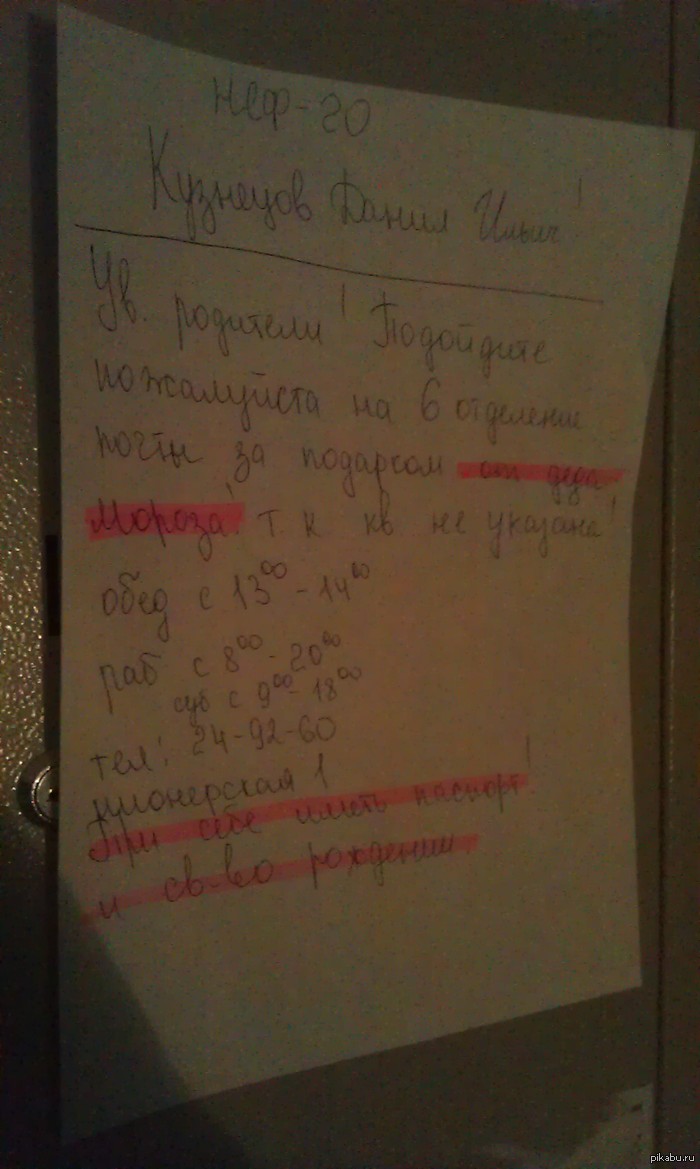 Неф-20
Кузнецов Данил Ильич!
Ув. родители! Подойдите
пожалуйста на 6 отделение
почты за подарком от деда
Мороза! т. к кв не указана!
обед с 13⁰⁰-14⁰⁰
раб с 8⁰⁰-20⁰⁰
суб с 9⁰⁰-18⁰⁰
тел: 24-92-60
пионерская 1
При себе иметь паспорт!
и св-во рождении.
pikabu.ru